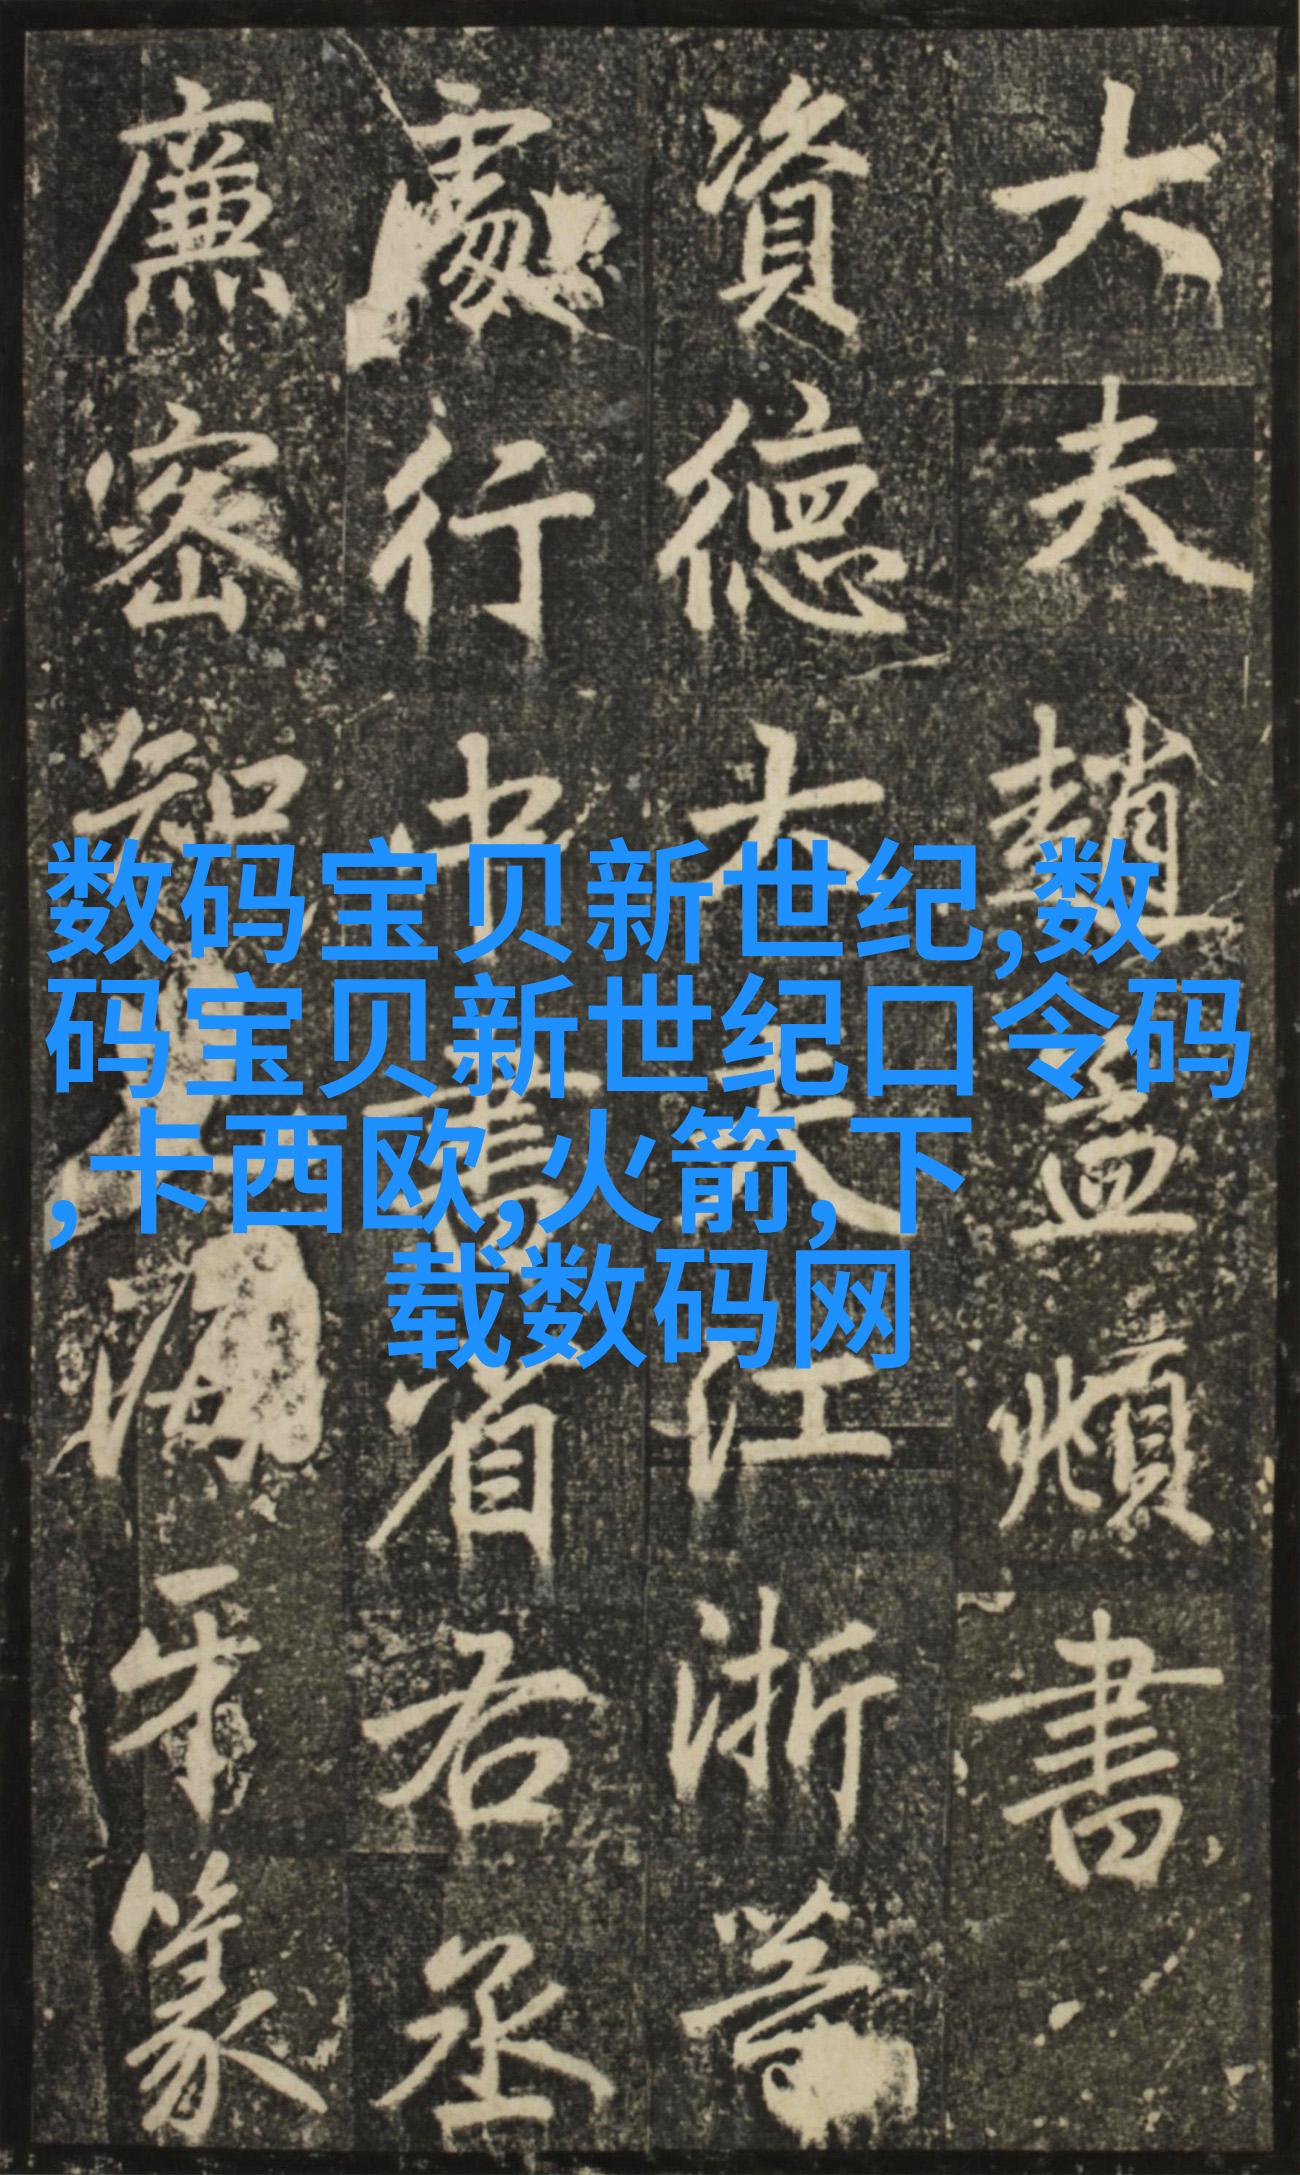 大夫趙孟頫書
資德大夫江浙等
處行中書省右丞
廉密知海牙篆
数码宝贝新世纪,数
码宝贝新世纪口令码
,卡西欧,火箭,下
载数码网